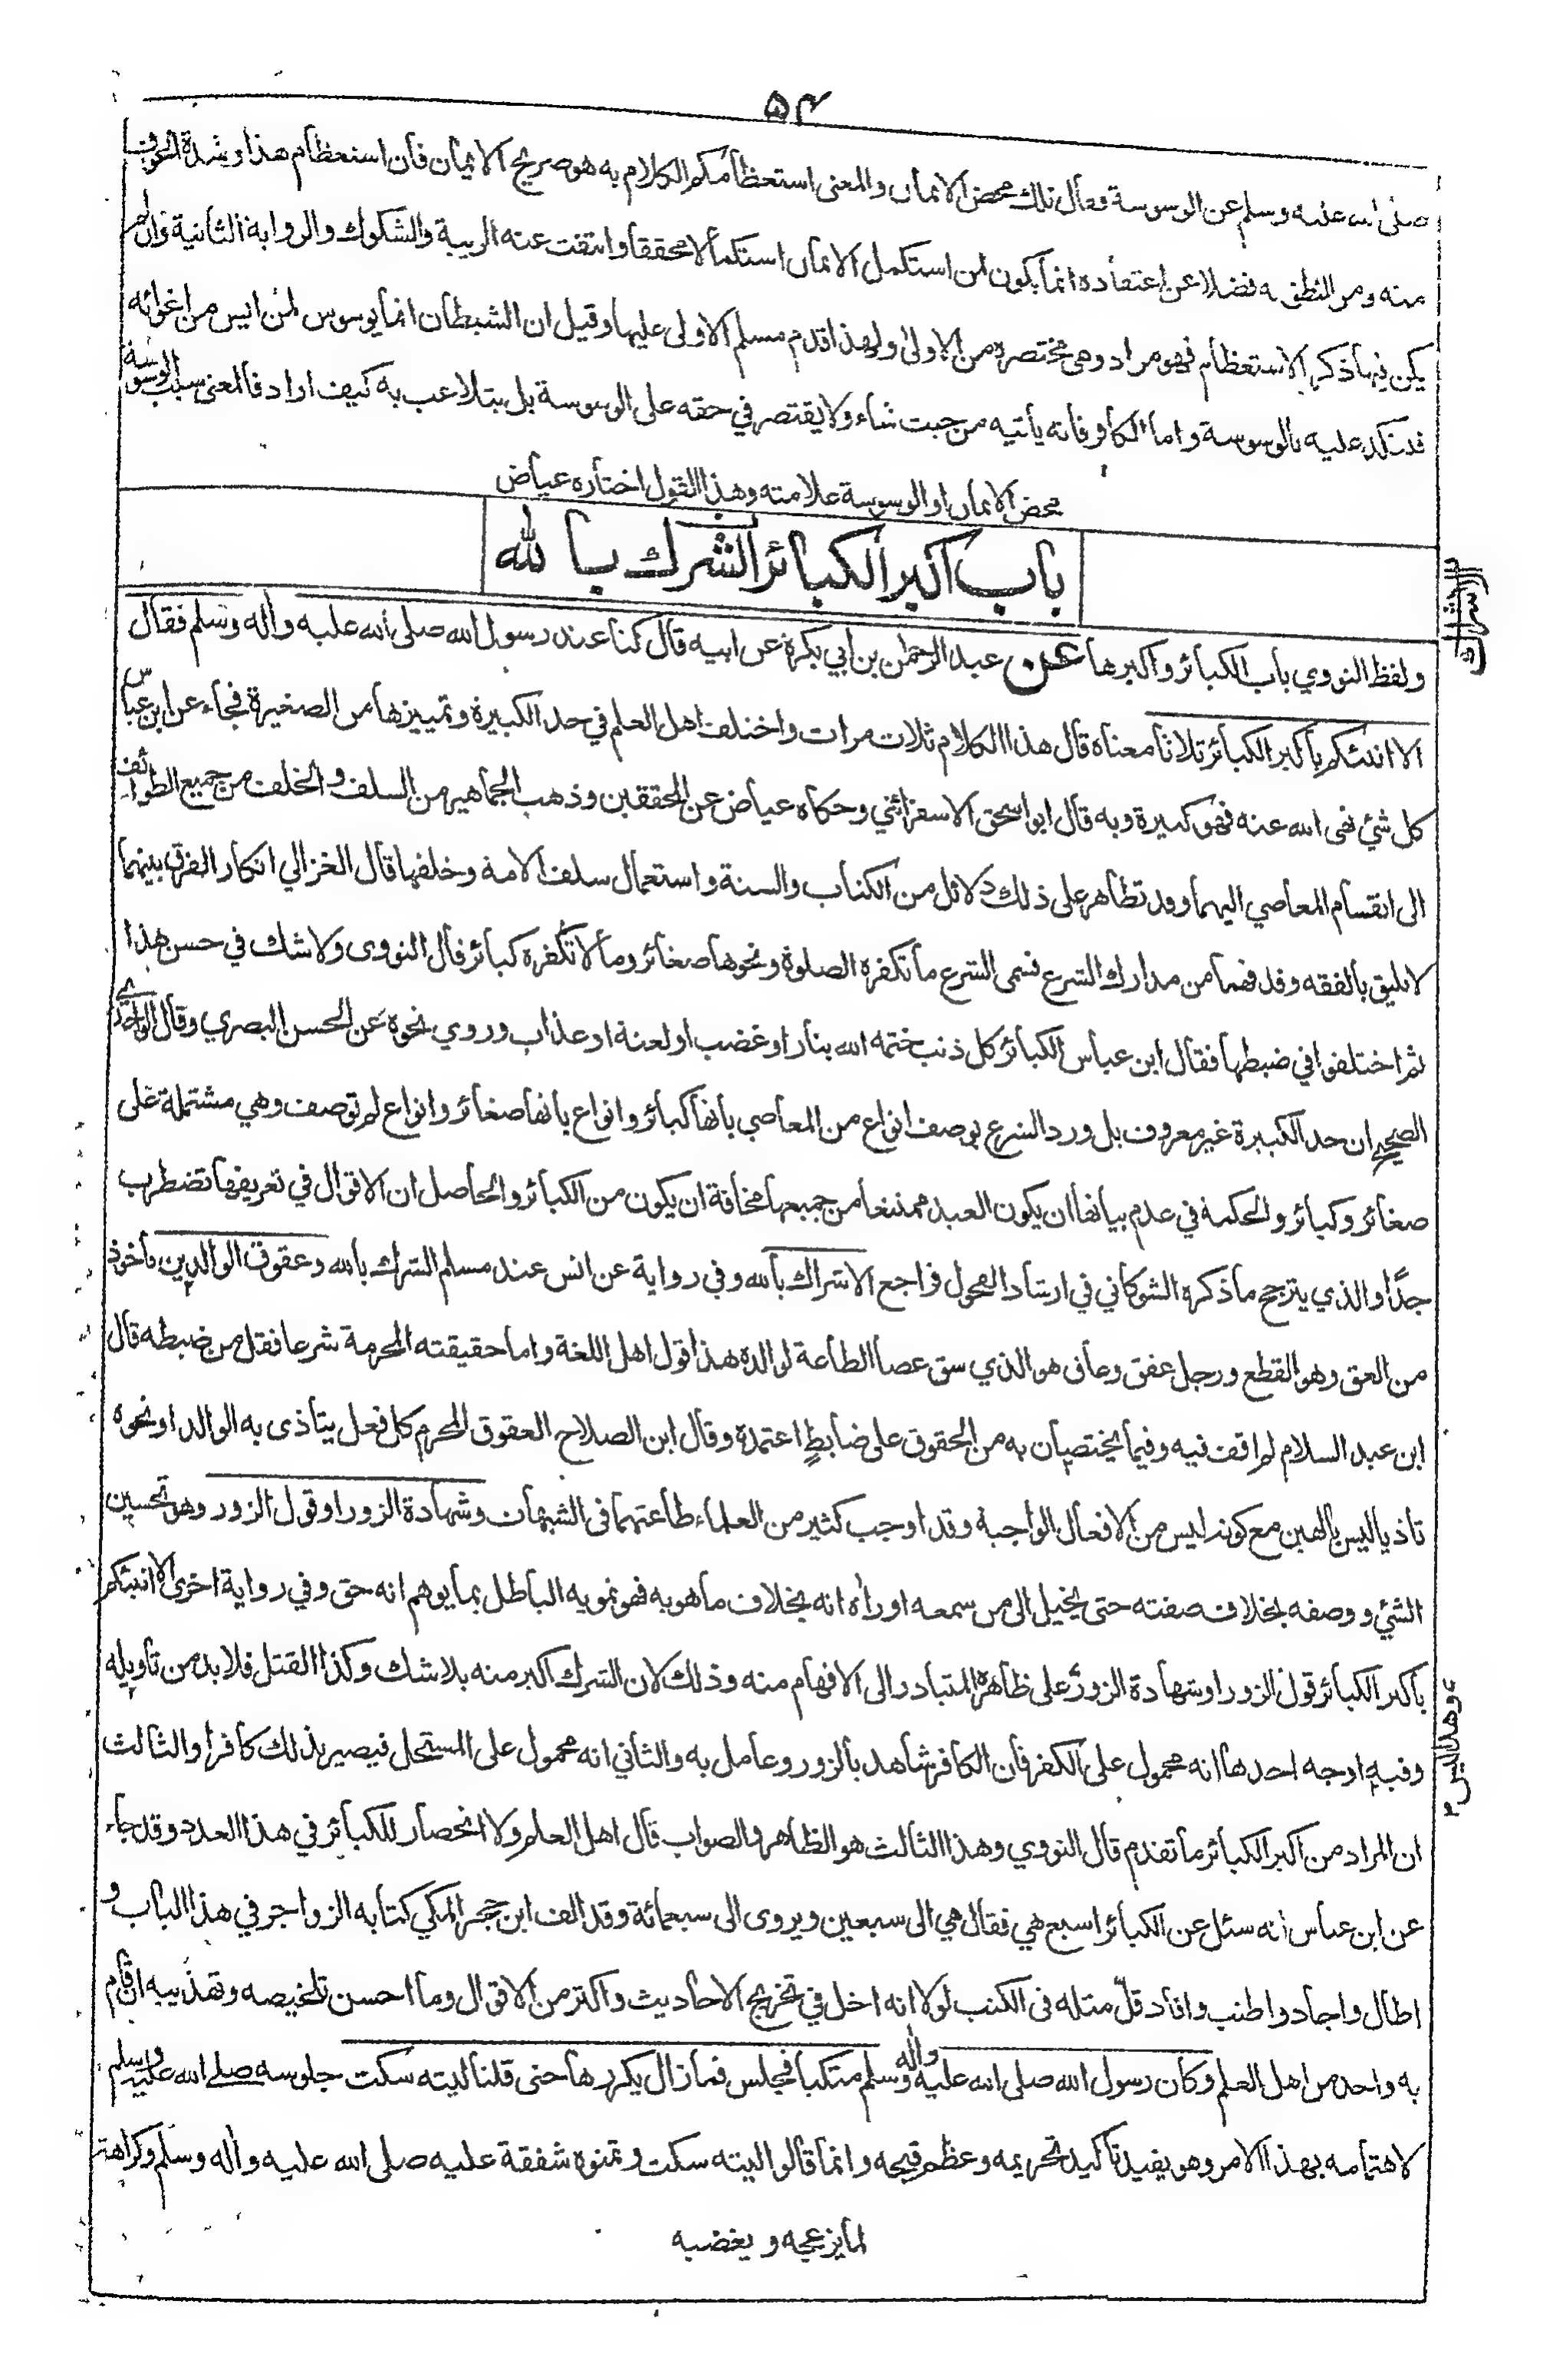 ۵۴
صلى الله عليه وسلم عن الوسوسة فقال تلك محض الايمان والمعنى استعظامكم الكلام به هو صريح الايمان فان استعظام هذا وشدة الخوف
منه ومن النطق به فضلا عن اعتقاده انما يكون لمن استكمل الايمان استكمالا محققا وانتفت عنه الريبة والشكوك والرواية الثانية وان لم
يكن فيها ذكر الاستعظام فهو مراد وهى مختصرة من الاولى ولهذا قدم مسلم الاولى عليها وقيل ان الشيطان انما يوسوس لمن ايس من اغوائه
فينكد عليه بالوسوسة واما الكافر فانه يأتيه من حيث شاء ولا يقتصر في حقه على الوسوسة بل يتلاعب به كيف اراد فالمعنى سبب الوسوسة
محض الايمان او الوسوسة علامته وهذا القول اختاره عياض
باب اكبر الكبائر الشرك بالله
الاشراك
ولفظ النووي باب الكبائر واكبرها عن عبد الرحمن بن ابي بكرة عن ابيه قال كنا عند رسول الله صلى الله عليه واله وسلم فقال
الا انبئكم باكبر الكبائر ثلاثا معناه قال هذا الكلام ثلاث مرات واختلف اهل العلم في حد الكبيرة وتمييزها من الصغيرة فجاء عن ابن عباس
كل شئ نهى الله عنه فهو كبيرة وبه قال ابو اسحق الاسفرائني وحكاه عياض عن المحققين وذهب الجماهير من السلف والخلف من جميع الطوائف
الى انقسام المعاصي اليهما وقد تظاهر على ذلك دلائل من الكتاب والسنة واستعمال سلف الامة وخلفها قال الغزالي انكار الفرق بينهما
لا يليق بالفقه وقد فهما من مدارك الشرع فسمى الشرع ما تكفره الصلوة ونحوها صغائر وما لا تكفره كبائر قال النووى ولا شك في حسن هذا
ثم اختلفوا في ضبطها فقال ابن عباس الكبائر كل ذنب ختمه الله بنار او غضب او لعنة او عذاب وروي نحوه عن الحسن البصري وقال الواحدي
الصحيح ان حد الكبيرة غير معروف بل ورد الشرع بوصف انواع من المعاصي بانها كبائر وانواع بانها صغائر وانواع لم توصف وهي مشتملة على
صغائر وكبائر والحكمة في عدم بيانها ان يكون العبد ممتنعا من جميعها مخافة ان يكون من الكبائر والحاصل ان الاقوال في تعريفها تضطرب
جدًا والذي يترجح ما ذكره الشوكاني في ارشاد الفحول فراجع الاشراك بالله وفي رواية عن انس عند مسلم الشرك بالله وعقوق الوالدين مأخوذ
من العق وهو القطع ورجل عقق وعاق هو الذي شق عصا الطاعة لوالده هذا قول اهل اللغة واما حقيقته المحرمة شرعا فقل من ضبطه قال
ابن عبد السلام لم اقف فيه وفيما يختصان به من الحقوق على ضابطٍ اعتمده وقال ابن الصلاح العقوق المحرم كل فعل يتاذى به الوالد او نحوه
تاذيا ليس بالهين مع كونه ليس من الافعال الواجبة وقد اوجب كثير من العلماء طاعتهما فى الشبهات وشهادة الزور او قول الزور وهو تحسين
الشئ ووصفه بخلاف صفته حتى يخيل الى من سمعه او رأه انه بخلاف ما هو به فهو تمويه الباطل بما يوهم انه حق وفي رواية اخرى الا انبئكم
باكبر الكبائر قول الزور او شهادة الزور على ظاهره المتبادر الى الافهام منه وذلك لان الشرك اكبر منه بلا شك وكذا القتل فلا بد من تأويله
وهذا ليس
وفيه اوجه احدها انه محمول على الكفر فان الكافر شاهد بالزور وعامل به والثاني انه محمول على المستحل فيصير بذلك كافرا والثالث
ان المراد من اكبر الكبائر ما تقدم قال النووي وهذا الثالث هو الظاهر والصواب قال اهل العلم ولا انحصار للكبائر في هذا العدد وقد جاء
عن ابن عباس انه سئل عن الكبائر اسبع هي فقال هي الى سبعين ويروى الى سبعمائة وقد الف ابن حجر المكي كتابه الزواجر في هذا الباب و
اطال واجاد واطنب وافاد قلّ مثله فى الكتب لولا انه اخل في تخريج الاحاديث واكثر من الاقوال وما احسن تلخيصه وتهذيبه ان قام
به واحد من اهل العلم وكان رسول الله صلى الله عليه واله وسلم متكيا فجلس فما زال يكررها حتى قلنا ليته سكت جلوسه صلى الله عليه وسلم
لاهتمامه بهذا الامر وهو يفيد تاكيد تحريمه وعظم قبحه وانما قالوا ليته سكت وتمنوه شفقة عليه صلى الله عليه واله وسلم وكراهة
لما يزعجه ويغضبه